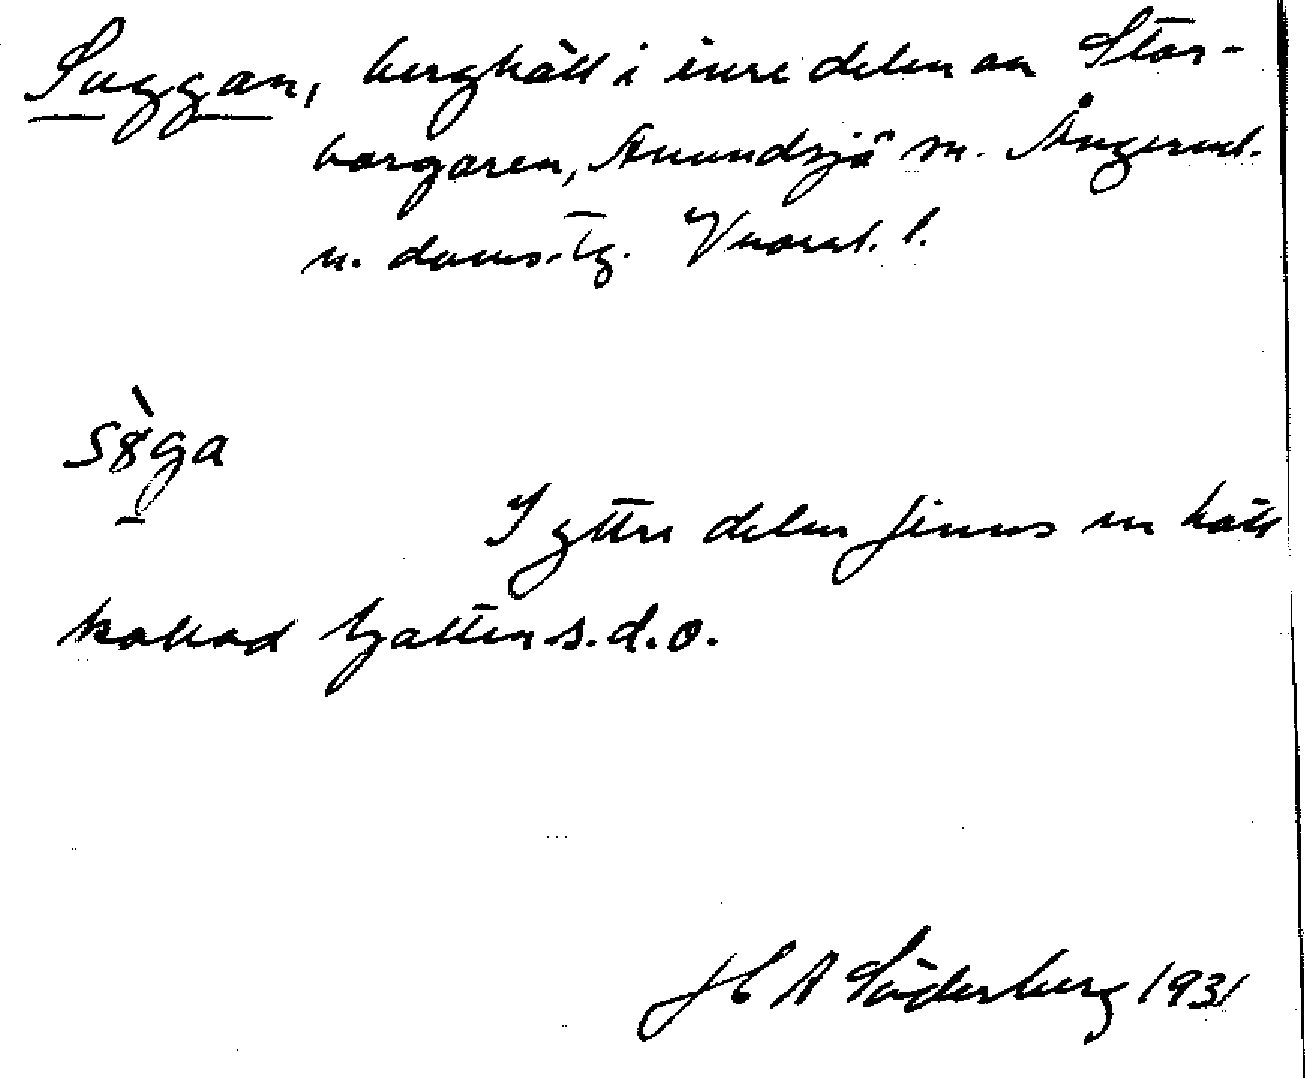 Suggan, berghäll i inre delen av Stor-
borgaren, Anundsjö sn. Ångerml.
n. doms. tg. Vnorrl. l.
sɤ̀ga
I yttre delen finns en häll
kallad Galten s.d.o.
H A Söderberg 1931